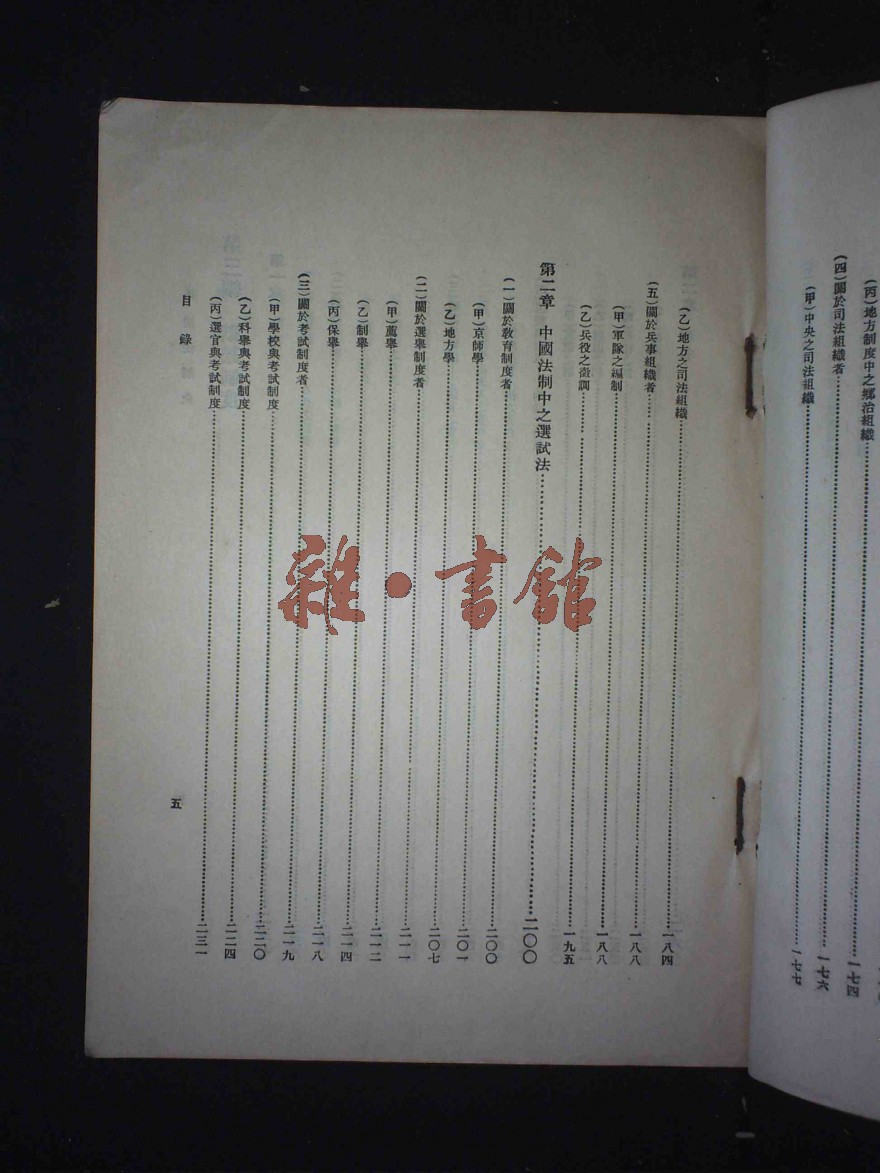 (丙)地方制度中之鄉治組織……一七四
(四)關於司法組織者……一七六
(甲)中央之司法組織……一七七
(乙)地方之司法組織……一八四
(五)關於兵事組織者……一八八
(甲)軍隊之編制……一八八
(乙)兵役之徵調……一九五
第二章 中國法制中之選試法……二〇〇
(一)關於教育制度者……二〇〇
(甲)京師學……二〇一
(乙)地方學……二〇七
(二)關於選舉制度者……二一一
(甲)薦舉……二一二
(乙)制舉……二一四
(丙)保舉……二一八
(三)關於考試制度者……二一九
(甲)學校與考試制度……二二〇
(乙)科舉與考試制度……二二四
(丙)選官與考試制度……二三一
目錄
五
雜·書館